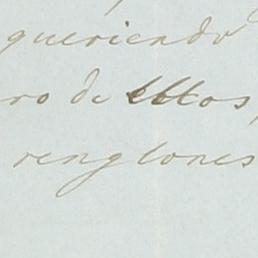 queriendo
ro de ellos,
renglones